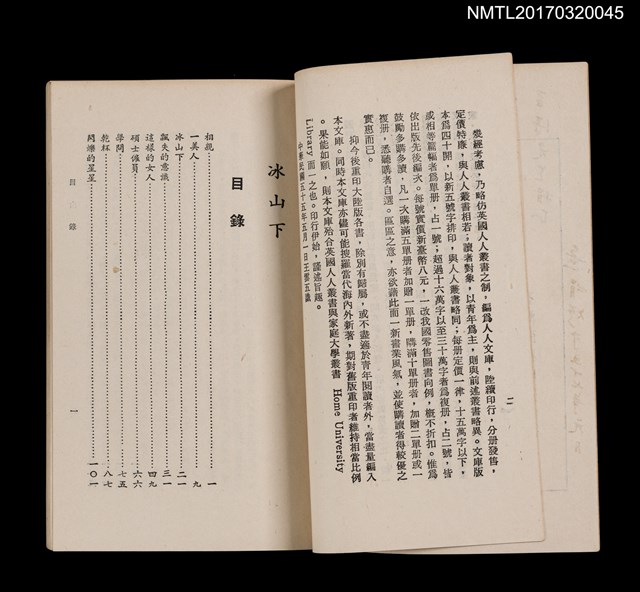 NMTL20170320045
二
幾經考慮，乃略仿英國人人叢書之制，編為人人文庫，陸續印行，分冊發售，
定價特廉，與人人叢書相若；讀者對象，以青年為主，則與前述叢書略異。文庫版
本為四十開，以新五號字排印，與人人叢書略同；每冊定價一律，十五萬字以下，
或相等篇幅者為單冊，占一號；超過十六萬字以至三十萬字者為複冊，占二號，皆
依出版先後編次。每號實價新臺幣八元，一改我國零售圖書向例，概不折扣。惟為
鼓勵多購多讀，凡一次購滿五單冊者加贈一單冊，購滿十單冊者，加贈二單冊或一
複冊，悉聽購者自選。區區之意，亦欲藉此而一新書業風氣，並使購讀者得較優之
實惠而已。
抑今後重印大陸版各書，除別有歸屬，或不盡適於青年閱讀者外，當盡量編入
本文庫。同時本文庫亦儘可能搜羅當代海內外新著，期對舊版重印者維持相當比例
。果能如願，則本文庫殆合英國人人叢書與家庭大學叢書 Home University
Library 而一之也。印行伊始，謹述旨趣。
中華民國五十五年五月一日王雲五識
冰山下
目錄
相親……一
一美人……九
冰山下……二一
飄失的意識……三一
這樣的女人……四九
碩士雇員……六六
學問……七五
乾杯……八七
閃爍的星星……一〇一
目錄
一